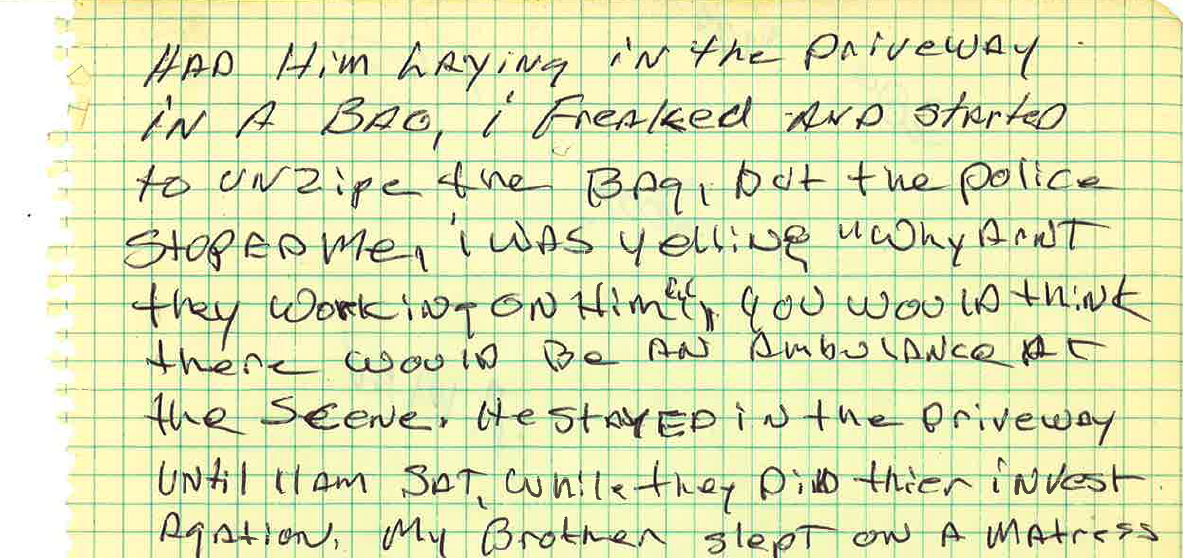 HAD Him LAYing iN the DRiveWAY
iN A BAG, i FreAked AND stArteD
to uNzipe the BAg, but the police
StopED Me, i WAS yelliNg "Why ArNT
they WorkiNg ON Him", you woulD thiNk
there woulD Be AN AmbulANce At
the SceNe. He STAYED iN the Driveway
UNtil 11 Am SAT, while they DiD thier iNvest
AgAtioN. My Brother slepT oN A MAtress